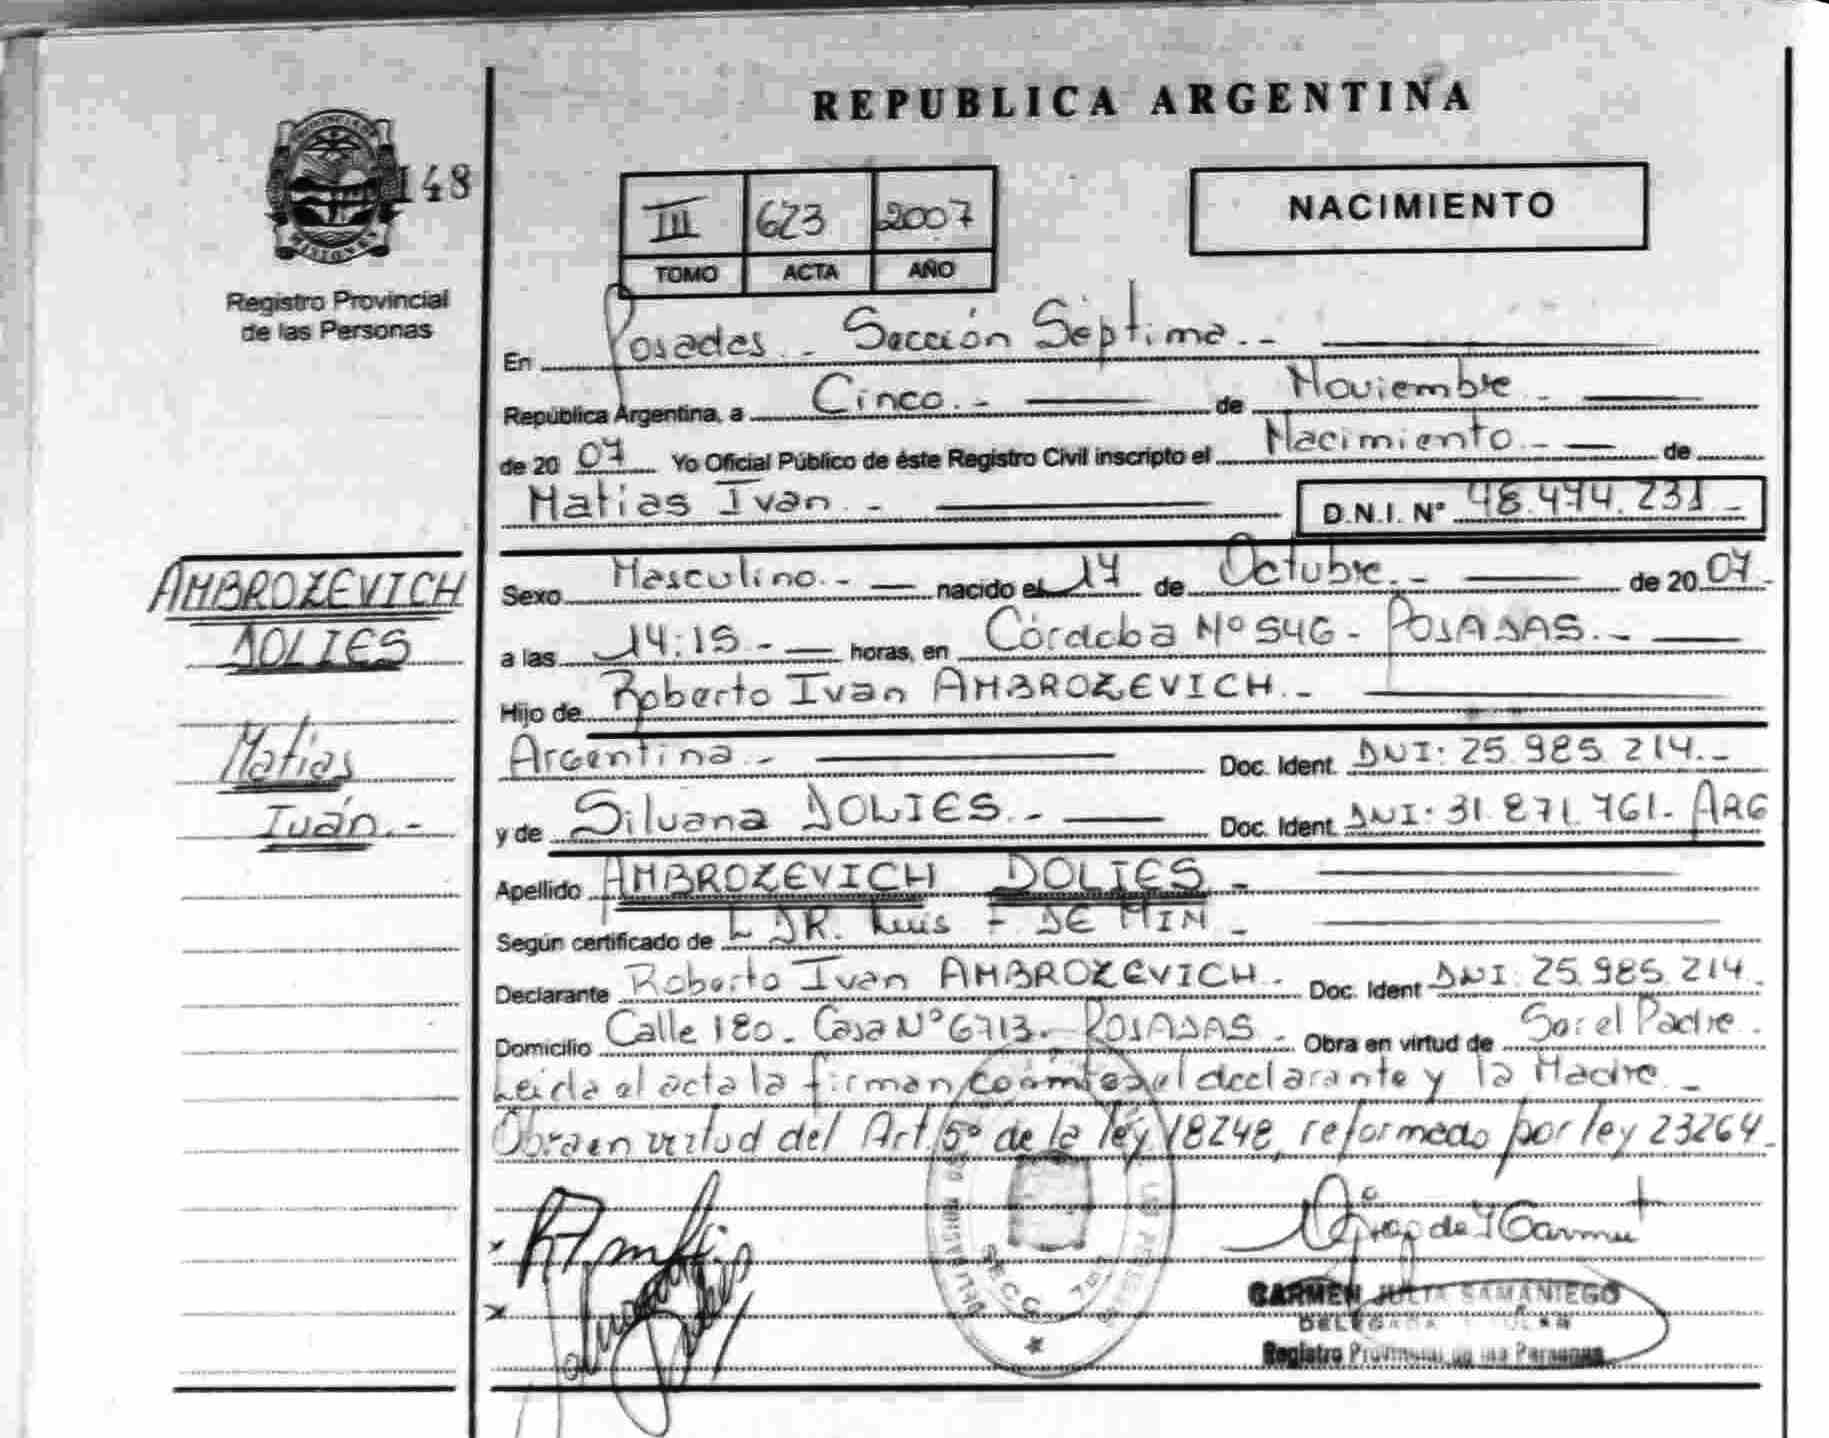 REPUBLICA ARGENTINA
148
PROVINCIA DE
MISIONES
Registro Provincial
de las Personas
III 623 2007
TOMO ACTA AÑO
NACIMIENTO
En Posadas.- Sección Séptima.-
República Argentina, a Cinco.- de Noviembre.-
de 20 07 Yo Oficial Público de éste Registro Civil inscripto el Nacimiento.- de
Matias Ivan.- D.N.I. N° 48.474.231.-
AMBROZEVICH
DOLIES
Matias
Iván.-
Sexo Masculino.- nacido el 17 de Octubre.- de 20 07.
a las 14:15.- horas, en Córdoba Nº 546- POSADAS.-
Hijo de Roberto Ivan AMBROZEVICH.-
Argentina.- Doc. Ident. DNI: 25.985.214.-
y de Silvana DOLIES.- Doc. Ident. DNI: 31.871.761- ARG
Apellido AMBROZEVICH DOLIES-
Según certificado de DR. Luis F. DE MIN-
Declarante Roberto Ivan AMBROZEVICH. Doc. Ident DNI: 25.985.214.
Domicilio Calle 180. Casa Nº 6713. POSADAS- Obra en virtud de Ser el Padre.
Leida el acta la firman conmigo el declarante y la Madre.-
Obra en virtud del Art. 5º de la ley 18248, reformado por ley 23264.
CARMEN JULIA SAMANIEGO
DELEGADA TITULAR
Registro Provincial de las Personas